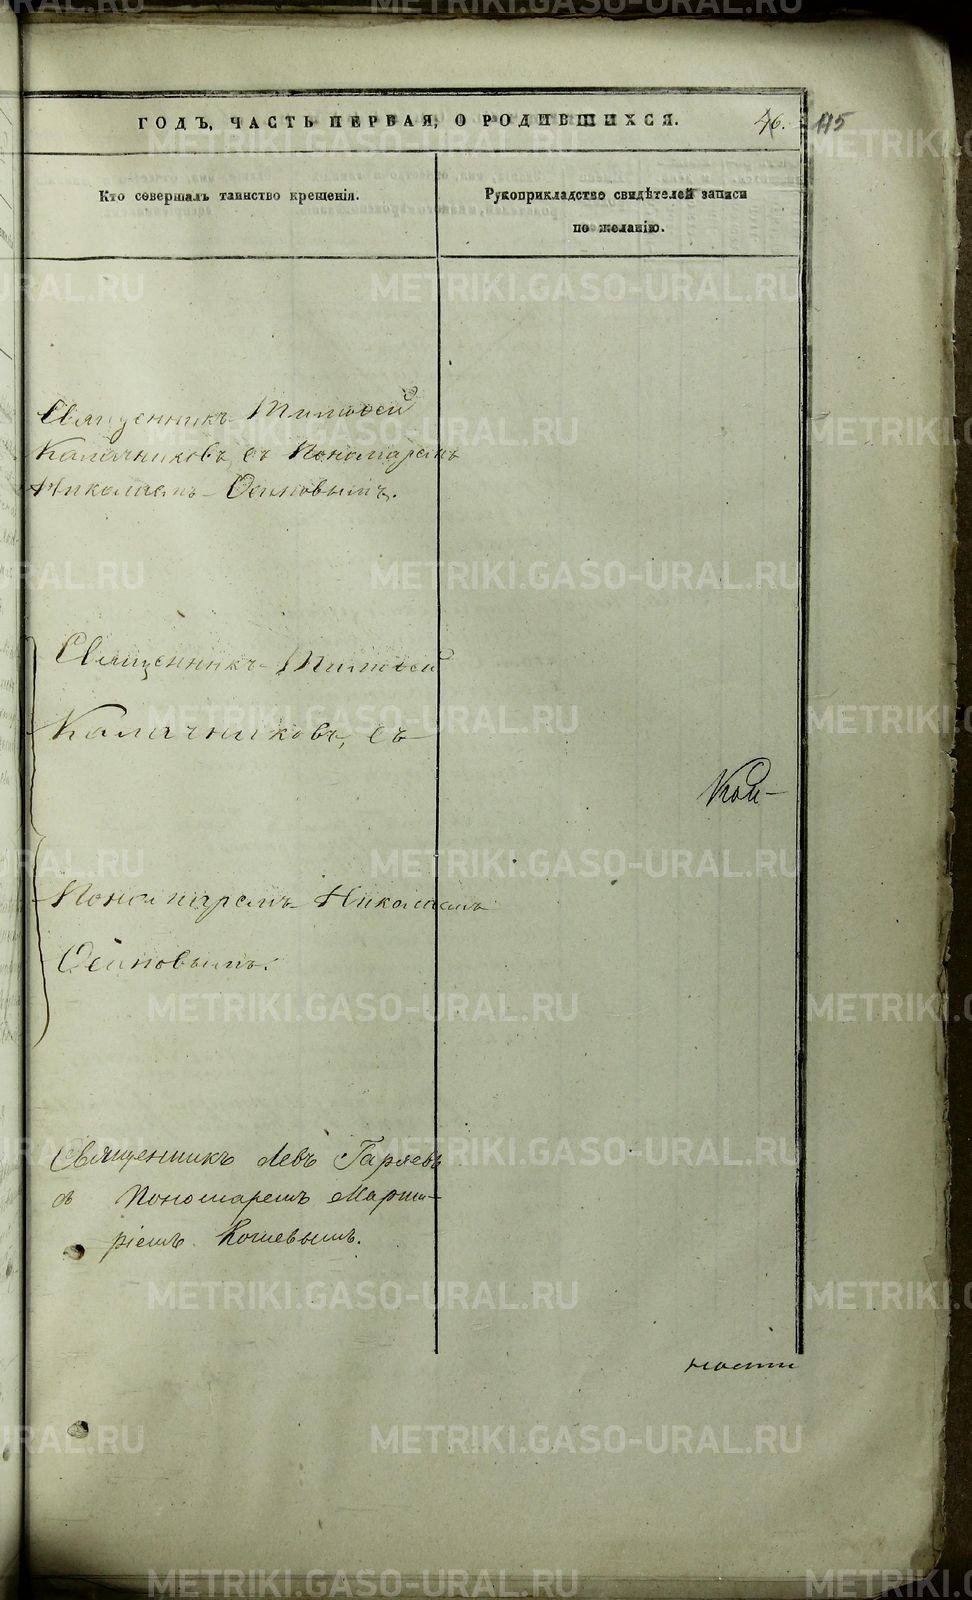 ГОДЪ, ЧАСТЬ ПЕРВАЯ, О РОДИВШИХСЯ.
46. 115
Кто совершалъ таинство крещенія.
Рукоприкладство свидѣтелей записи
по желанію.
Священникъ Тимофей
Калачниковъ, съ Пономаремъ
Николаемъ Осиповымъ.
Священникъ Тимофей
Калачниковъ, съ
Пономаремъ Николаемъ
Осиповымъ.
Священникъ Левъ Гаряевъ
съ Пономаремъ Марти-
ріемъ Кошевымъ.
ности
METRIKI.GASO-URAL.RU